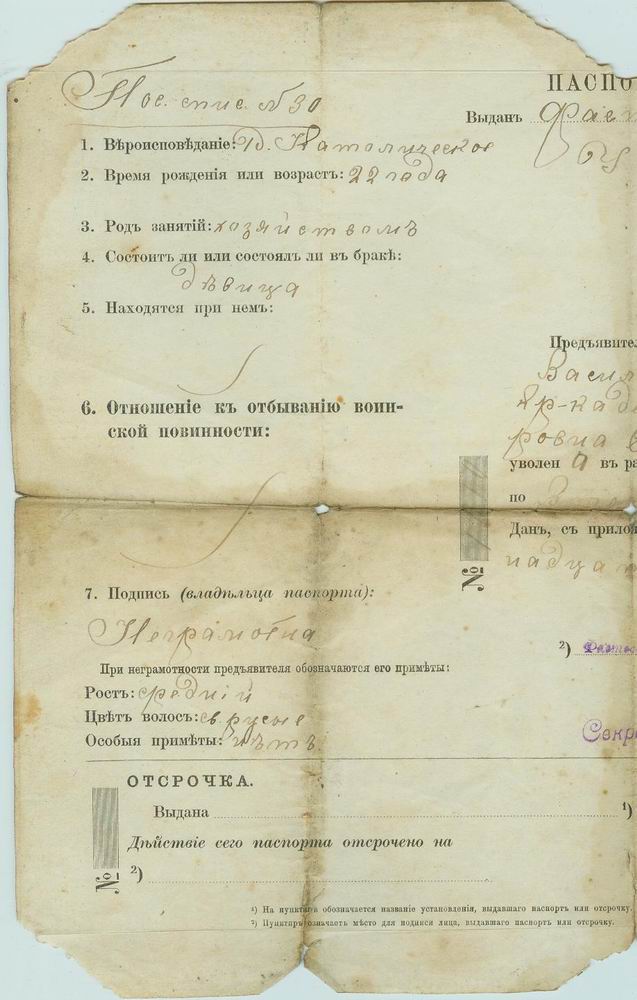 Пос. спис. № 30
ПАСПО
Выданъ
1. Вѣроисповѣданіе: Католическое
2. Время рожденія или возрастъ: 22 года
3. Родъ занятій: хозяйствомъ
4. Состоитъ ли или состоялъ ли въ бракѣ:
дѣвица
5. Находятся при немъ:
Предъявител
Васил
6. Отношеніе къ отбыванію воин-
ской повинности:
ровна
уволен а въ ра
по
Данъ, съ прилож
надца
№
7. Подпись (владѣльца паспорта):
Неграмотна
2)
При неграмотности предъявителя обозначаются его примѣты:
Ростъ: средній
Цвѣтъ волосъ: св. русые
Особыя примѣты: нѣтъ
Секр
ОТСРОЧКА.
Выдана 1)
Дѣйствіе сего паспорта отсрочено на
№
2)
1) На пунктирѣ обозначается названіе установленія, выдавшаго паспортъ или отсрочку.
2) Пунктиръ означаетъ мѣсто для подписи лица, выдавшаго паспортъ или отсрочку.